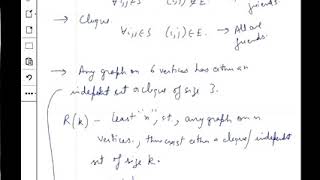 ∀i,j∈S (i,j)∉E. friends.
→ Clique
∀i,j∈S (i,j)∈E. → All are
friends.
→ Any graph on 6 vertices has either an
independent set or clique of size 3.
R(k) - least "n", s.t, any graph on n
vertices, there exist either a clique/independent
set of size k.